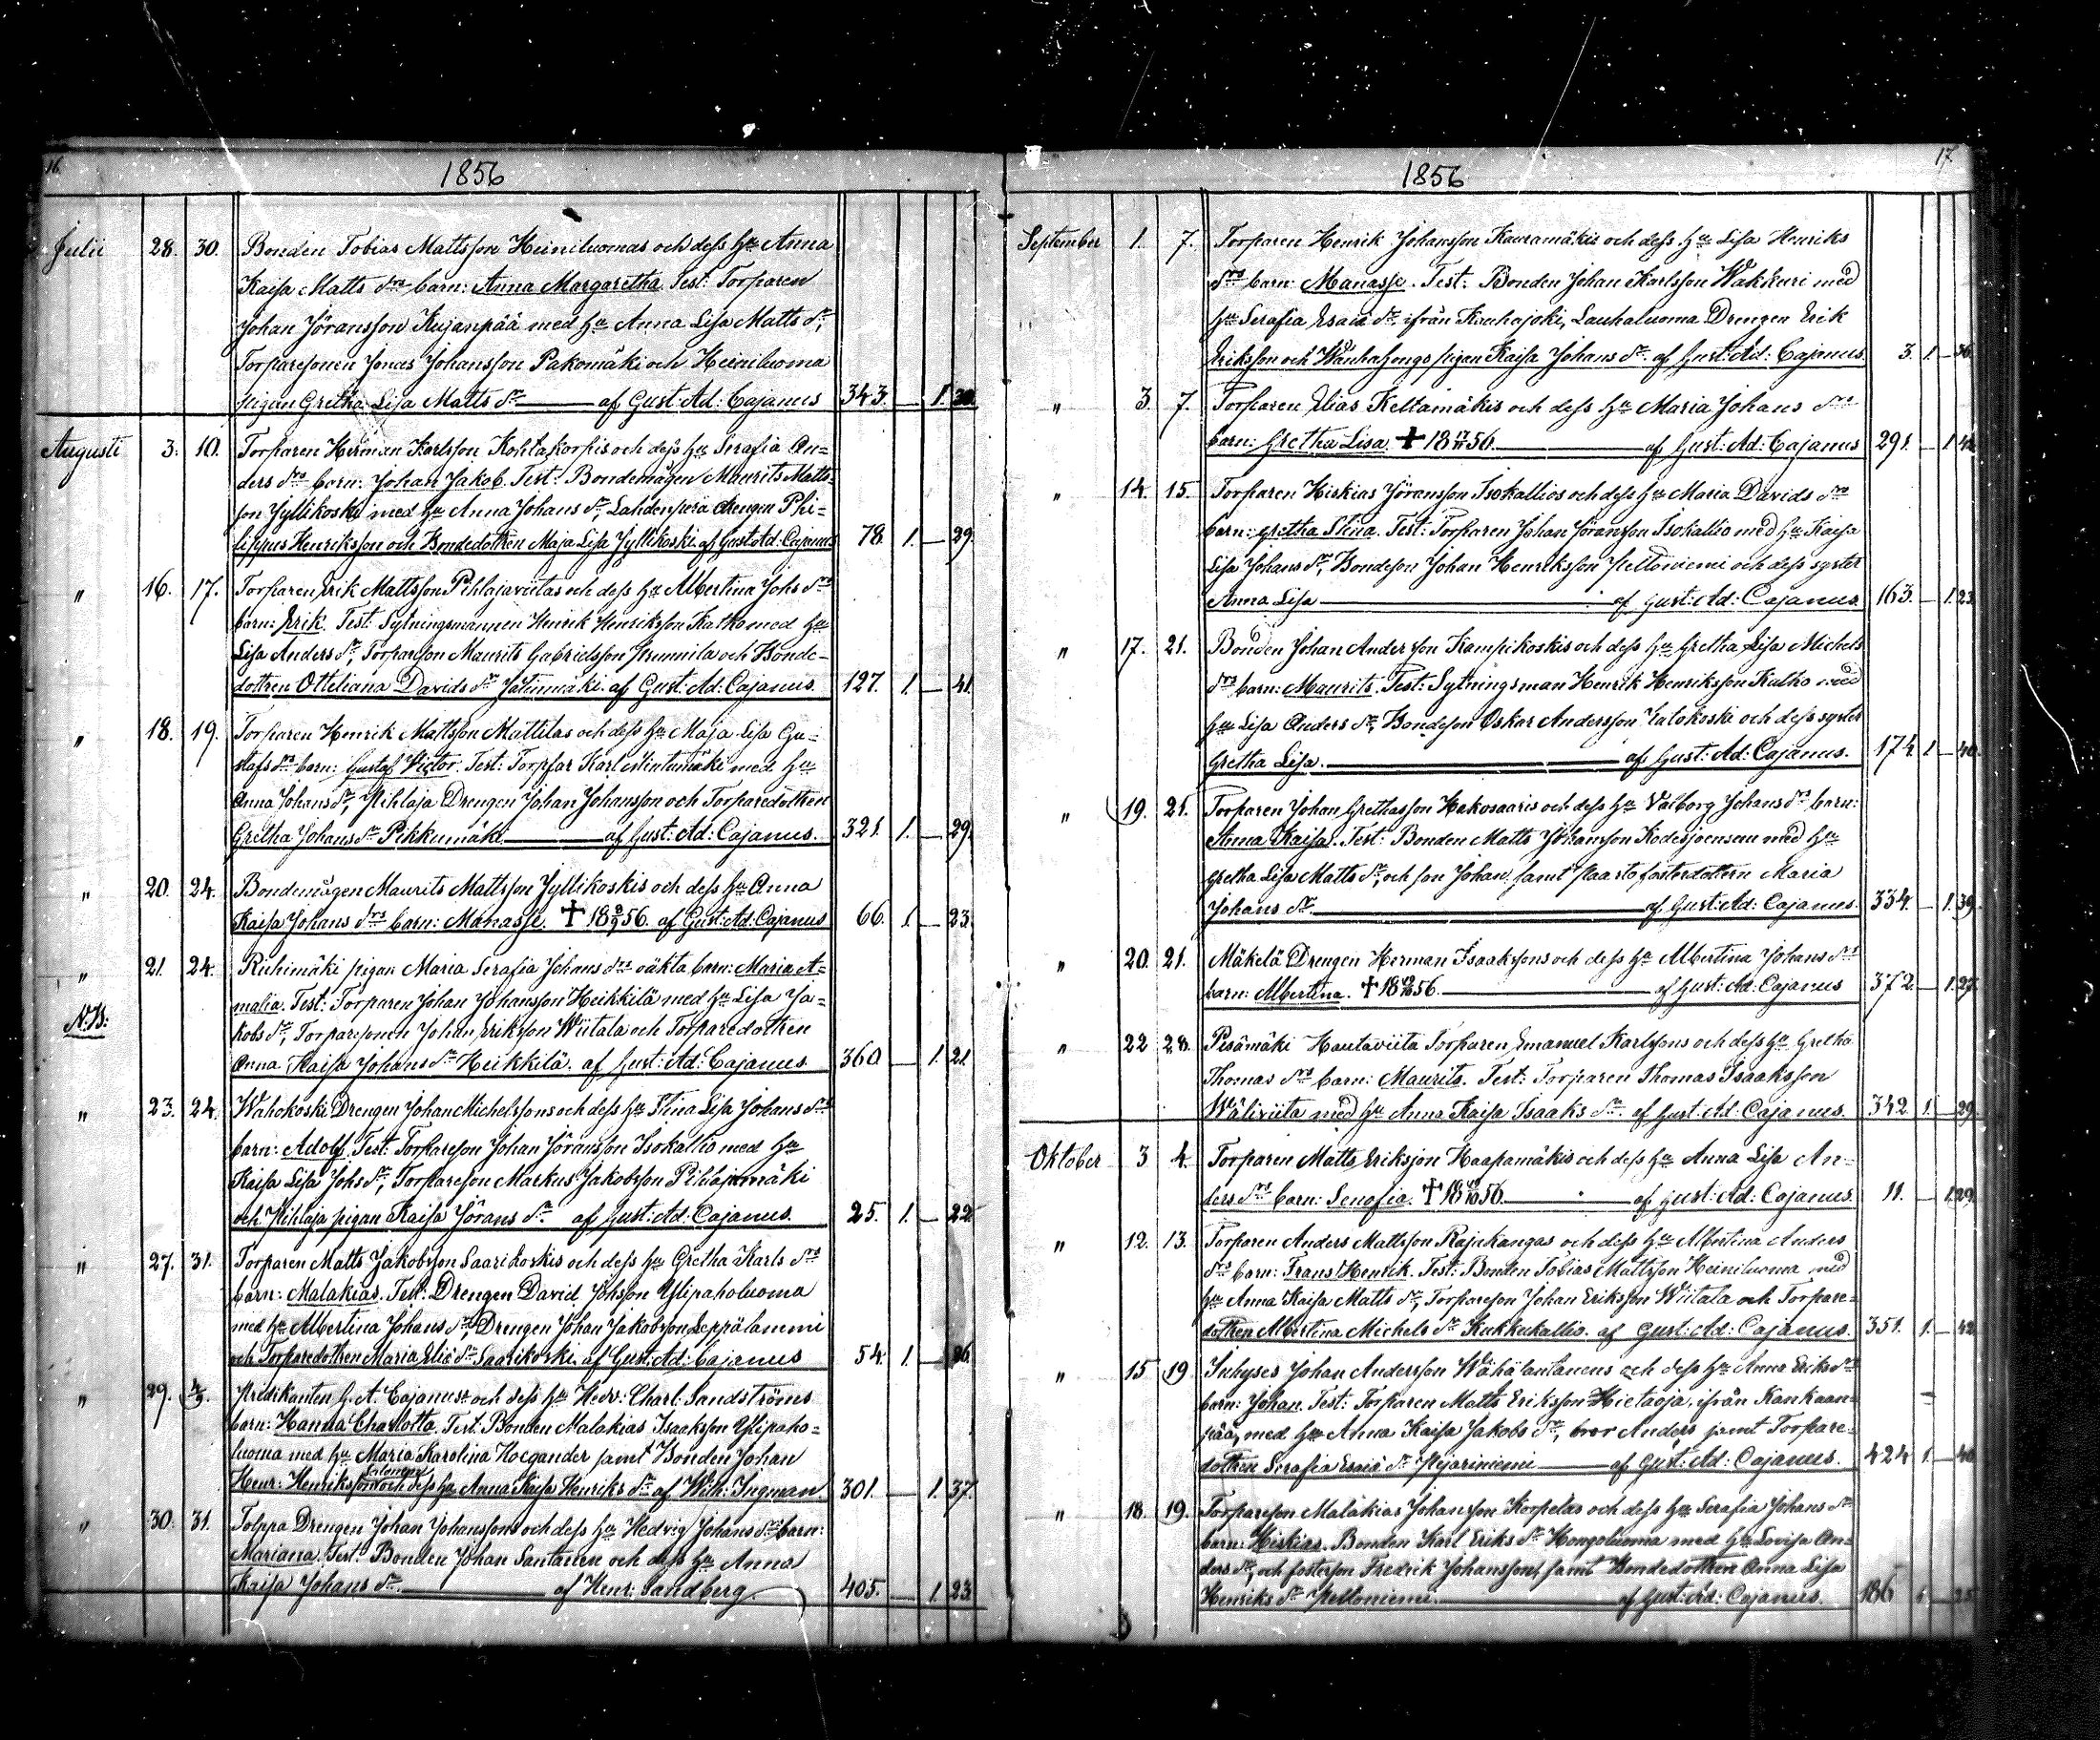 16
1856
Julii 28. 30. Bonden Tobias Mattsson Heiniluomas och dess hu Anna
Kaisa Matts drs barn: Anna Margaretha. Test: Torparen
Johan Jöransson Kujanpää med hu Anna Lisa Matts dr,
Torparesonen Jonas Johansson Pakomäki och Heiniluoma
pigan Gretha Lisa Matts dr af Gust: Ad: Cajanus 343. 1.
Augusti 3. 10. Torparen Herman Karlsson Kohtakorpis och dess hu Serafia An-
ders drs barn: Johan Jakob. Test: Bondemågen Maurits Matts-
son Jyllikoski med hu Anna Johans dr, Lahdenperä drengen Phi-
lippus Henriksson och Bondedottren Maja Lisa Jyllikoski. af Gust: Ad: Cajanus 78. 1. 29.
" 16. 17. Torparen Erik Mattsson Pihlajaviitas och dess hu Albertina Johs drs
barn: Erik. Test: Sytningsmannen Henrik Henriksson Katko med hu
Lisa Anders dr, Torpareson Maurits Gabrielsson Prunnila och Bonde-
dottren Otteliana Davids dr Jatinmäki. af Gust: Ad: Cajanus. 127. 1. 41.
" 18. 19. Torparen Henrik Mattsson Mattilas och dess hu Maja Lisa Gu-
stafs drs barn: Gustaf Victor. Test: Torpar Karl Mintumäki med hu
Anna Johans dr, Pihlaja Drengen Johan Johansson och Torparedottren
Gretha Johans dr Pikkumäki af Gust: Ad: Cajanus. 321. 1. 29.
" 20. 24. Bondemågen Maurits Mattsson Jyllikoskis och dess hu Anna
Kaisa Johans drs barn: Manasse. † 18 56. af Gust: Ad: Cajanus 66. 1. 23.
" 21. 24. Riihimäki pigan Maria Serafia Johans drs oäkta barn: Maria A-
N.B: malia. Test: Torparen Johan Johansson Heikkilä med hu Lisa Ja-
kobs dr, Torparesonen Johan Eriksson Wiitala och Torparedottren
Anna Kaisa Johans dr Heikkilä. af Gust: Ad: Cajanus. 360 1. 21.
" 23. 24. Wahokoski Drengen Johan Michelssons och dess hu Stina Lisa Johans drs
barn: Adolf. Test: Torpareson Johan Jöransson Isokallio med hu
Kaisa Lisa Johs dr, Torpareson Markus Jakobsson Pihlajamäki
och Pihlaja pigan Kaisa Jörans dr af Gust: Ad: Cajanus. 25. 1. 22
" 27. 31. Torparen Matts Jakobsson Saarikoskis och dess hu Gretha Karls drs
barn: Malakias. Test: Drengen David Johsson Ylipaholuoma
med hu Albertina Johans dr, Drengen Johan Jakobsson Leppälammi
och Torparedottren Maria Eliæ dr Saarikoski. af Gust: Ad: Cajanus 54. 1. 26.
" 29. 4/9. Predikanten G. A. Cajanus och dess hu Hedv: Charl: Sandströms
barn: Hanna Charlotta. Test: Bonden Malakias Isaaksson Ylipaho-
luoma med hu Maria Karolina Hoegander samt Bonden Johan
Henr: Henriksson och dess hu Anna Kaisa Henriks dr af Wilh: Ingman. 301. 1. 37.
" 30. 31. Tolppa Drengen Johan Johanssons och dess hu Hedvig Johans drs barn:
Mariana. Test: Bonden Johan Santanen och dess hu Anna
Kaisa Johans dr. af Henr: Sandberg. 405. 1. 23.
17.
1856
September 1. 7. Torparen Henrik Johansson Kauramäkis och dess hu Lisa Henriks
drs barn: Manasse. Test: Bonden Johan Karlsson Wakkuri med
hu Serafia Esaiæ dr ifrån Kauhajoki, Lauhaluoma Drengen Erik
Eriksson och Wanhahongo pigan Kaisa Johans dr. af Gust: Ad: Cajanus. 3. 1. 36.
" 3. 7. Torparen Elias Keltamäkis och dess hu Maria Johans drs
barn: Gretha Lisa. † 18 56. af Gust: Ad: Cajanus 291. 1.
" 14. 15. Torparen Hiskias Jöransson Isokallios och dess hu Maria Davids drs
barn: Gretha Stina. Test: Torparen Johan Jöransson Isokallio med hu Kaisa
Lisa Johans dr, Bondeson Johan Henriksson Peltoniemi och dess syster
Anna Lisa af Gust: Ad: Cajanus. 163. 1. 23
" 17. 21. Bonden Johan Andersson Kampikoskis och dess hu Gretha Lisa Michels
drs barn: Maurits. Test: Sytningsman Henrik Henriksson Katko med
hu Lisa Anders dr, Bondeson Oskar Andersson Yatokoski och dess syster
Gretha Lisa. af Gust: Ad: Cajanus. 174 1. 40.
" 19. 21. Torparen Johan Grethasson Hakosaaris och dess hu Valborg Johans drs barn:
Anna Kaisa. Test: Bonden Matts Johansson Kodesjoensuu med hu
Gretha Lisa Matts dr, och son Johan samt Paarto fosterdottern Maria
Johans dr. af Gust: Ad: Cajanus. 334. 1. 39.
" 20. 21. Mäkelä Drengen Herman Isaakssons och dess hu Albertina Johans drs
barn: Albertina. † 18 56. af Gust: Ad: Cajanus 372 1. 27.
" 22 28. Pesämäki Hautaviita Torparen Emanuel Karlssons och dess hu Gretha
Thomas drs barn: Maurits. Test: Torparen Thomas Isaaksson
Wäliviita med hu Anna Kaisa Isaaks dr. af Gust: Ad: Cajanus. 342 1. 29.
Oktober 3 4. Torparen Matts Eriksson Haapamäkis och dess hu Anna Lisa An-
ders drs barn: Senofia. † 18 56. af Gust: Ad: Cajanus. 11. 1. 29.
" 12. 13. Torparen Anders Mattsson Rajakangas och dess hu Albertina Anders
drs barn: Frans Henrik. Test: Bonden Tobias Mattsson Heiniluoma med
hu Anna Kaisa Matts dr, Torpareson Johan Eriksson Wiitala och Torpare-
dottren Albertina Michels dr Kukkukallio. af Gust: Ad: Cajanus. 351. 1. 42
" 15 19. Inhyses Johan Andersson Wähäantanens och dess hu Anna Eriks drs
barn: Johan. Test: Torparen Matts Eriksson Hietaoja, ifrån Kankaan-
pää, med hu Anna Kaisa Jakobs dr, bror Anders samt Torpare-
dottren Serafia Esaiæ dr Pejariniemi af Gust: Ad: Cajanus. 424 1. 40
" 18. 19. Torpareson Malakias Johansson Korpelas och dess hu Serafia Johans drs
barn: Hiskias. Bonden Karl Eriks dr Hongoluoma med hu Lovisa An-
ders dr, och fosterson Fredrik Johansson, samt Bondedottren Anna Lisa
Henriks dr Peltoniemi. af Gust: Ad: Cajanus. 186 25